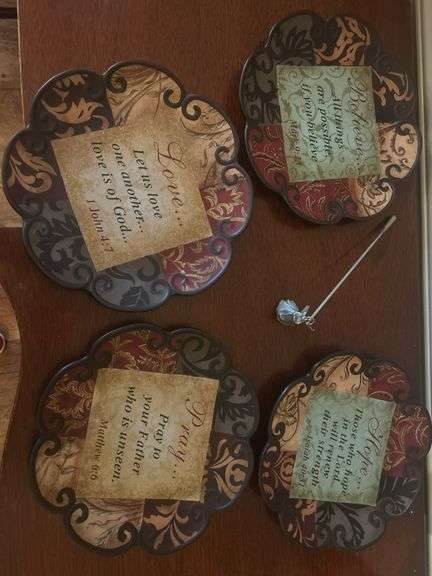 Love...
Let us love
one another...
love is of God...
1 John 4:7
Believe...
All things
are possible,
If you believe
Mark 9:23
Pray...
Pray to
your Father
who is unseen.
Matthew 6:6
Hope...
Those who hope
in the Lord
will renew
their strength